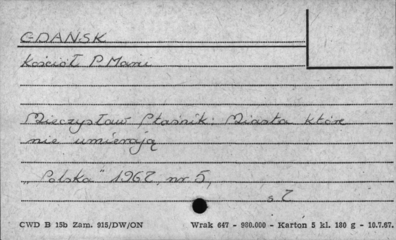 GDAŃSK
Kościół P. Marii
Mieczysław Ptaśnik: Miasta które
nie umierają
„Polska" 1962, nr 5,
s. 2
CWD B 15b Zam. 915/DW/ON Wrak 647 - 900.000 - Karton 5 kl. 180 g - 10.7.67.